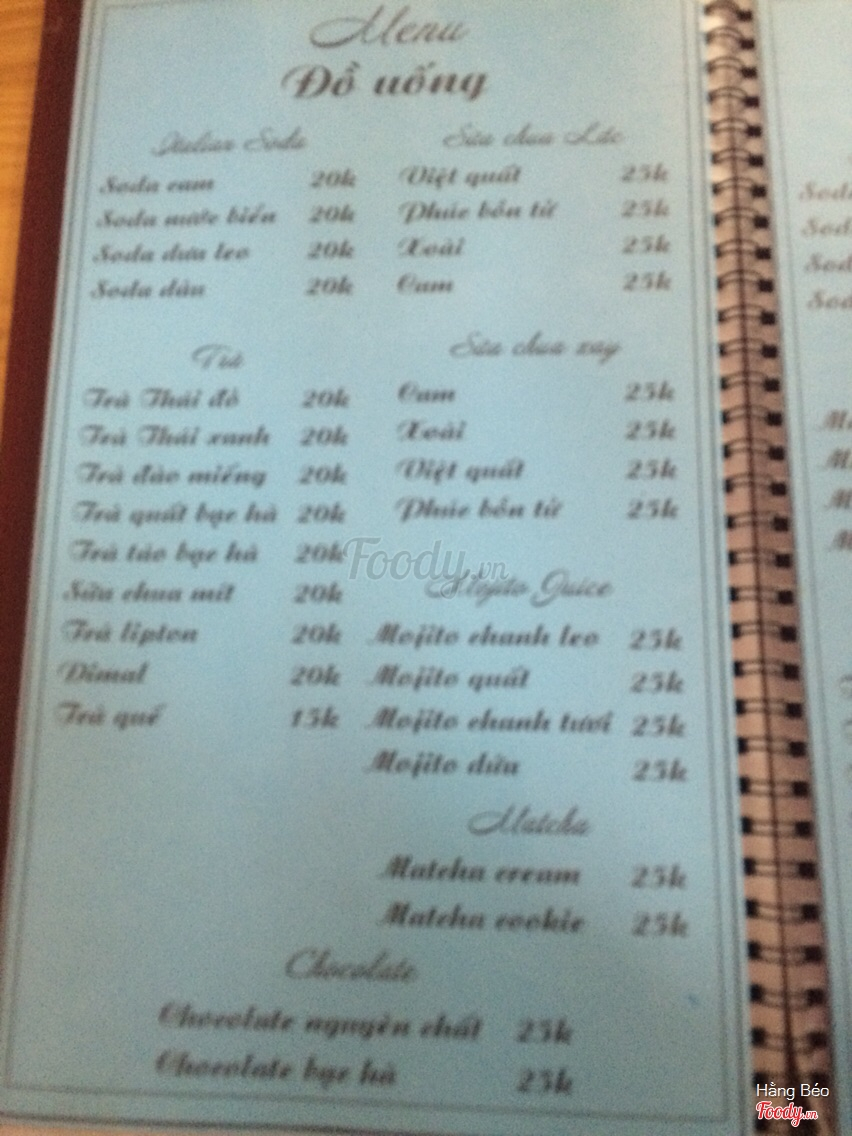 Menu
Đồ uống
Italian Soda
Soda cam 20k
Soda nước biển 20k
Soda dưa leo 20k
Soda dâu 20k
Trà
Trà Thái đỏ 20k
Trà Thái xanh 20k
Trà đào miếng 20k
Trà quất bạc hà 20k
Trà táo bạc hà 20k
Sữa chua mít 20k
Trà lipton 20k
Dimal 20k
Trà quế 15k
Sữa chua Lắc
Việt quất 25k
Phúc bồn tử 25k
Xoài 25k
Cam 25k
Sữa chua xay
Cam 25k
Xoài 25k
Việt quất 25k
Phúc bồn tử 25k
Mojito Juice
Mojito chanh leo 25k
Mojito quất 25k
Mojito chanh tươi 25k
Mojito dứa 25k
Matcha
Matcha cream 25k
Matcha cookie 25k
Chocolate
Chocolate nguyên chất 25k
Chocolate bạc hà 25k
Foody.vn
Soda
Sod
Sod
Sod
Hằng Béo
Foody.vn